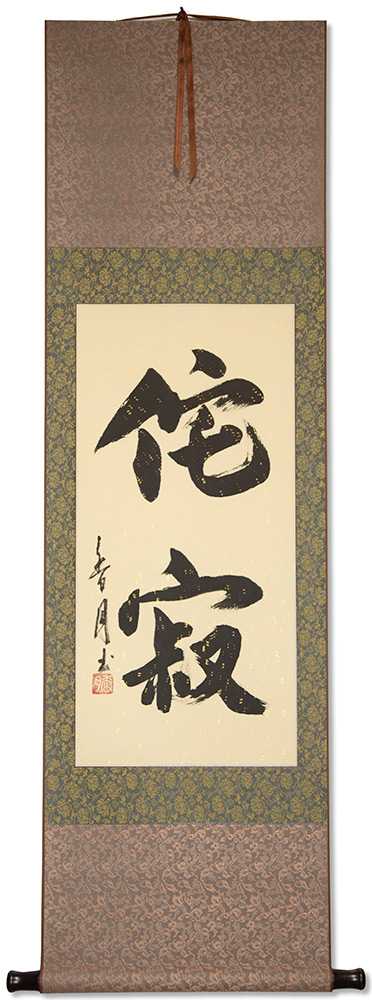 侘寂
香月书